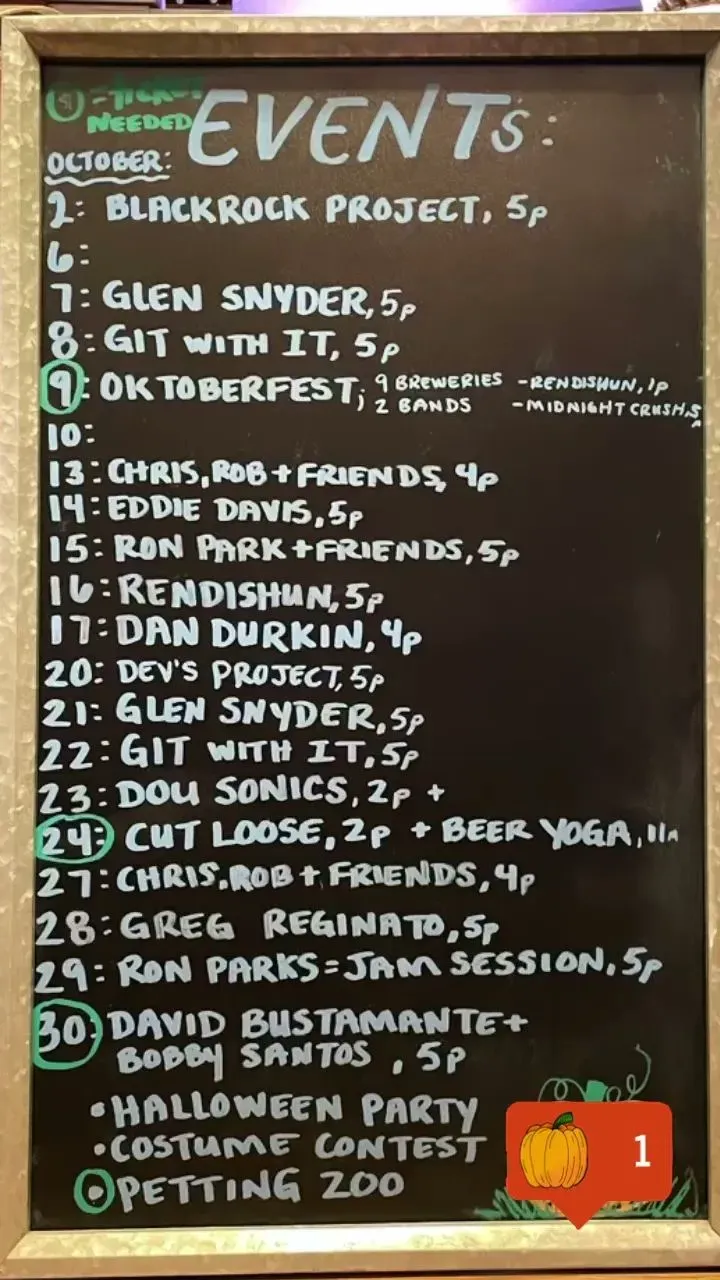 - TICKET
NEEDED
EVENTS:
OCTOBER:
2: BLACKROCK PROJECT, 5P
6:
7: GLEN SNYDER, 5P
8: GIT WITH IT, 5P
9: OKTOBERFEST; 9 BREWERIES - RENDISHUN, 1P
2 BANDS - MIDNIGHT CRUSH, 5
10:
13: CHRIS, ROB + FRIENDS, 4P
14: EDDIE DAVIS, 5P
15: RON PARK + FRIENDS, 5P
16: RENDISHUN, 5P
17: DAN DURKIN, 4P
20: DEV'S PROJECT, 5P
21: GLEN SNYDER, 5P
22: GIT WITH IT, 5P
23: DOU SONICS, 2P +
24: CUT LOOSE, 2P + BEER YOGA, 11A
27: CHRIS. ROB + FRIENDS, 4P
28: GREG REGINATO, 5P
29: RON PARKS = JAM SESSION, 5P
30: DAVID BUSTAMANTE +
BOBBY SANTOS, 5P
• HALLOWEEN PARTY
• COSTUME CONTEST
• PETTING ZOO
1